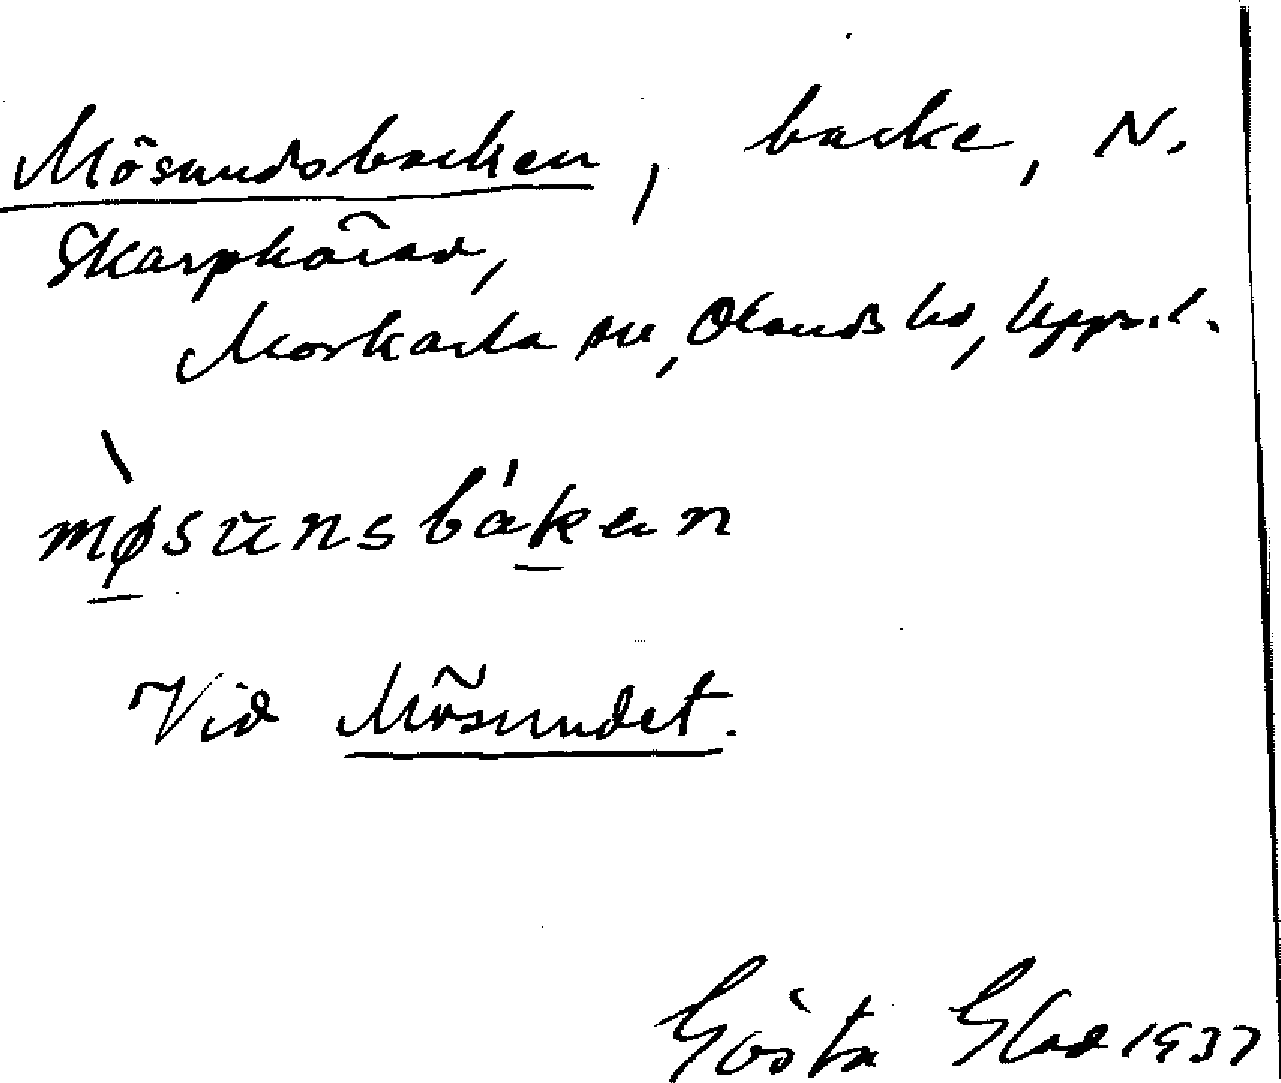 Mösundsbacken, backe, N.
Skarphärad,
Morkarla sn, Olands hd, Upps. l.
mø̀sunsbákan
Vid Mösundet.
Gösta Glad 1937